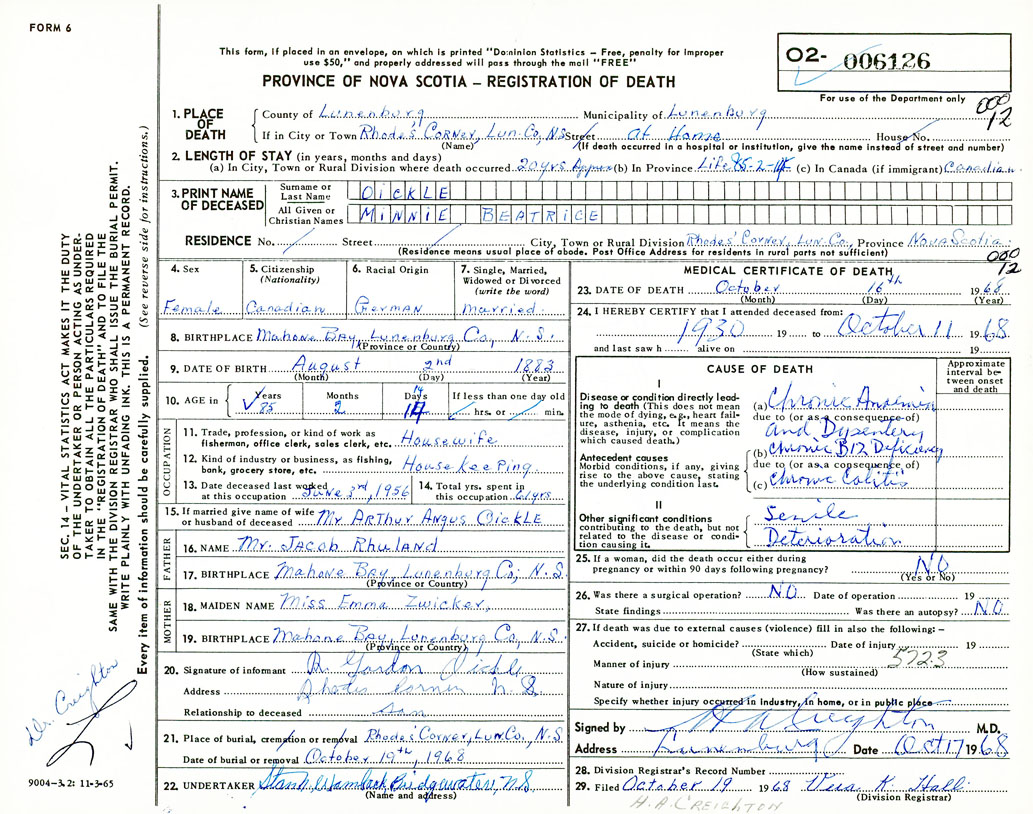 FORM 6
This form, if placed in an envelope, on which is printed "Dominion Statistics – Free, penalty for improper
use $50," and properly addressed will pass through the mail "FREE"
PROVINCE OF NOVA SCOTIA – REGISTRATION OF DEATH
02- 006126
For use of the Department only
000
12
1. PLACE OF DEATH
County of Lunenburg Municipality of Lunenburg
If in City or Town Rhode's Corner, Lun. Co, N.S Street At Home House No.
(Name) (If death occurred in a hospital or institution, give the name instead of street and number)
2. LENGTH OF STAY (in years, months and days)
(a) In City, Town or Rural Division where death occurred 20 yrs Approx (b) In Province Life 85-2-14 (c) In Canada (if immigrant) Canadian
3. PRINT NAME OF DECEASED
Surname or Last Name OICKLE
All Given or Christian Names MINNIE BEATRICE
RESIDENCE No. Street City, Town or Rural Division Rhodes' Corner, Lun. Co., Province Nova Scotia.
(Residence means usual place of abode. Post Office Address for residents in rural parts not sufficient)
000
12
4. Sex 5. Citizenship (Nationality) 6. Racial Origin 7. Single, Married, Widowed or Divorced (write the word)
Female Canadian German Married.
8. BIRTHPLACE Mahone Bay, Lunenburg Co, N.S.
(Province or Country)
9. DATE OF BIRTH August 2nd 1883
(Month) (Day) (Year)
10. AGE in Years Months Days If less than one day old
85 2 14 hrs. or min.
OCCUPATION
11. Trade, profession, or kind of work as fisherman, office clerk, sales clerk, etc. Housewife
12. Kind of industry or business, as fishing, bank, grocery store, etc. House Keeping.
13. Date deceased last worked at this occupation June 3rd, 1956 14. Total yrs. spent in this occupation 61 yrs
15. If married give name of wife or husband of deceased Mr Arthur Angus Oickle
FATHER
16. NAME Mr. Jacob Rhuland
17. BIRTHPLACE Mahone Bay, Lunenburg Co, N.S.
(Province or Country)
MOTHER
18. MAIDEN NAME Miss Emma Zwicker,
19. BIRTHPLACE Mahone Bay, Lunenburg Co, N.S.
(Province or Country)
20. Signature of informant R. Gordon Oickle
Address Rhodes Corner N.S.
Relationship to deceased son
21. Place of burial, cremation or removal Rhodes' Corner, Lun Co., N.S
Date of burial or removal October 19th, 1968
22. UNDERTAKER Bridgewater, N.S.
(Name and address)
MEDICAL CERTIFICATE OF DEATH
23. DATE OF DEATH October 16th 1968
(Month) (Day) (Year)
24. I HEREBY CERTIFY that I attended deceased from:
1930 19 to October 11 1968
and last saw h alive on 19
CAUSE OF DEATH
Approximate interval between onset and death
I
Disease or condition directly leading to death (This does not mean the mode of dying, e.g., heart failure, asthenia, etc. It means the disease, injury, or complication which caused death.)
(a) Chronic Anaemia
due to (or as a consequence of)
and Dysentery
Antecedent causes
Morbid conditions, if any, giving rise to the above cause, stating the underlying condition last.
(b) Chronic B12 Deficiency
due to (or as a consequence of)
(c) Chronic Colitis
II
Other significant conditions
contributing to the death, but not related to the disease or condition causing it.
Senile
Deterioration
25. If a woman, did the death occur either during pregnancy or within 90 days following pregnancy? NO
(Yes or No)
26. Was there a surgical operation? NO Date of operation 19
State findings Was there an autopsy? NO
27. If death was due to external causes (violence) fill in also the following: –
Accident, suicide or homicide? Date of injury 19
(State which) 5723
Manner of injury
(How sustained)
Nature of injury
Specify whether injury occurred in industry, in home, or in public place
Signed by H A Creighton M.D.
Address Lunenburg Date Oct 17 1968
28. Division Registrar's Record Number
29. Filed October 19 1968 K. Hall
(Division Registrar)
H.A. CREIGHTON
SEC. 14 – VITAL STATISTICS ACT MAKES IT THE DUTY
OF THE UNDERTAKER OR PERSON ACTING AS UNDER-
TAKER TO OBTAIN ALL THE PARTICULARS REQUIRED
IN THE "REGISTRATION OF DEATH" AND TO FILE THE
SAME WITH THE DIVISION REGISTRAR WHO SHALL ISSUE THE BURIAL PERMIT.
WRITE PLAINLY WITH UNFADING INK. THIS IS A PERMANENT RECORD.
Every item of information should be carefully supplied. (See reverse side for instructions.)
Dr. Creighton
9004-3.2: 11-3-65